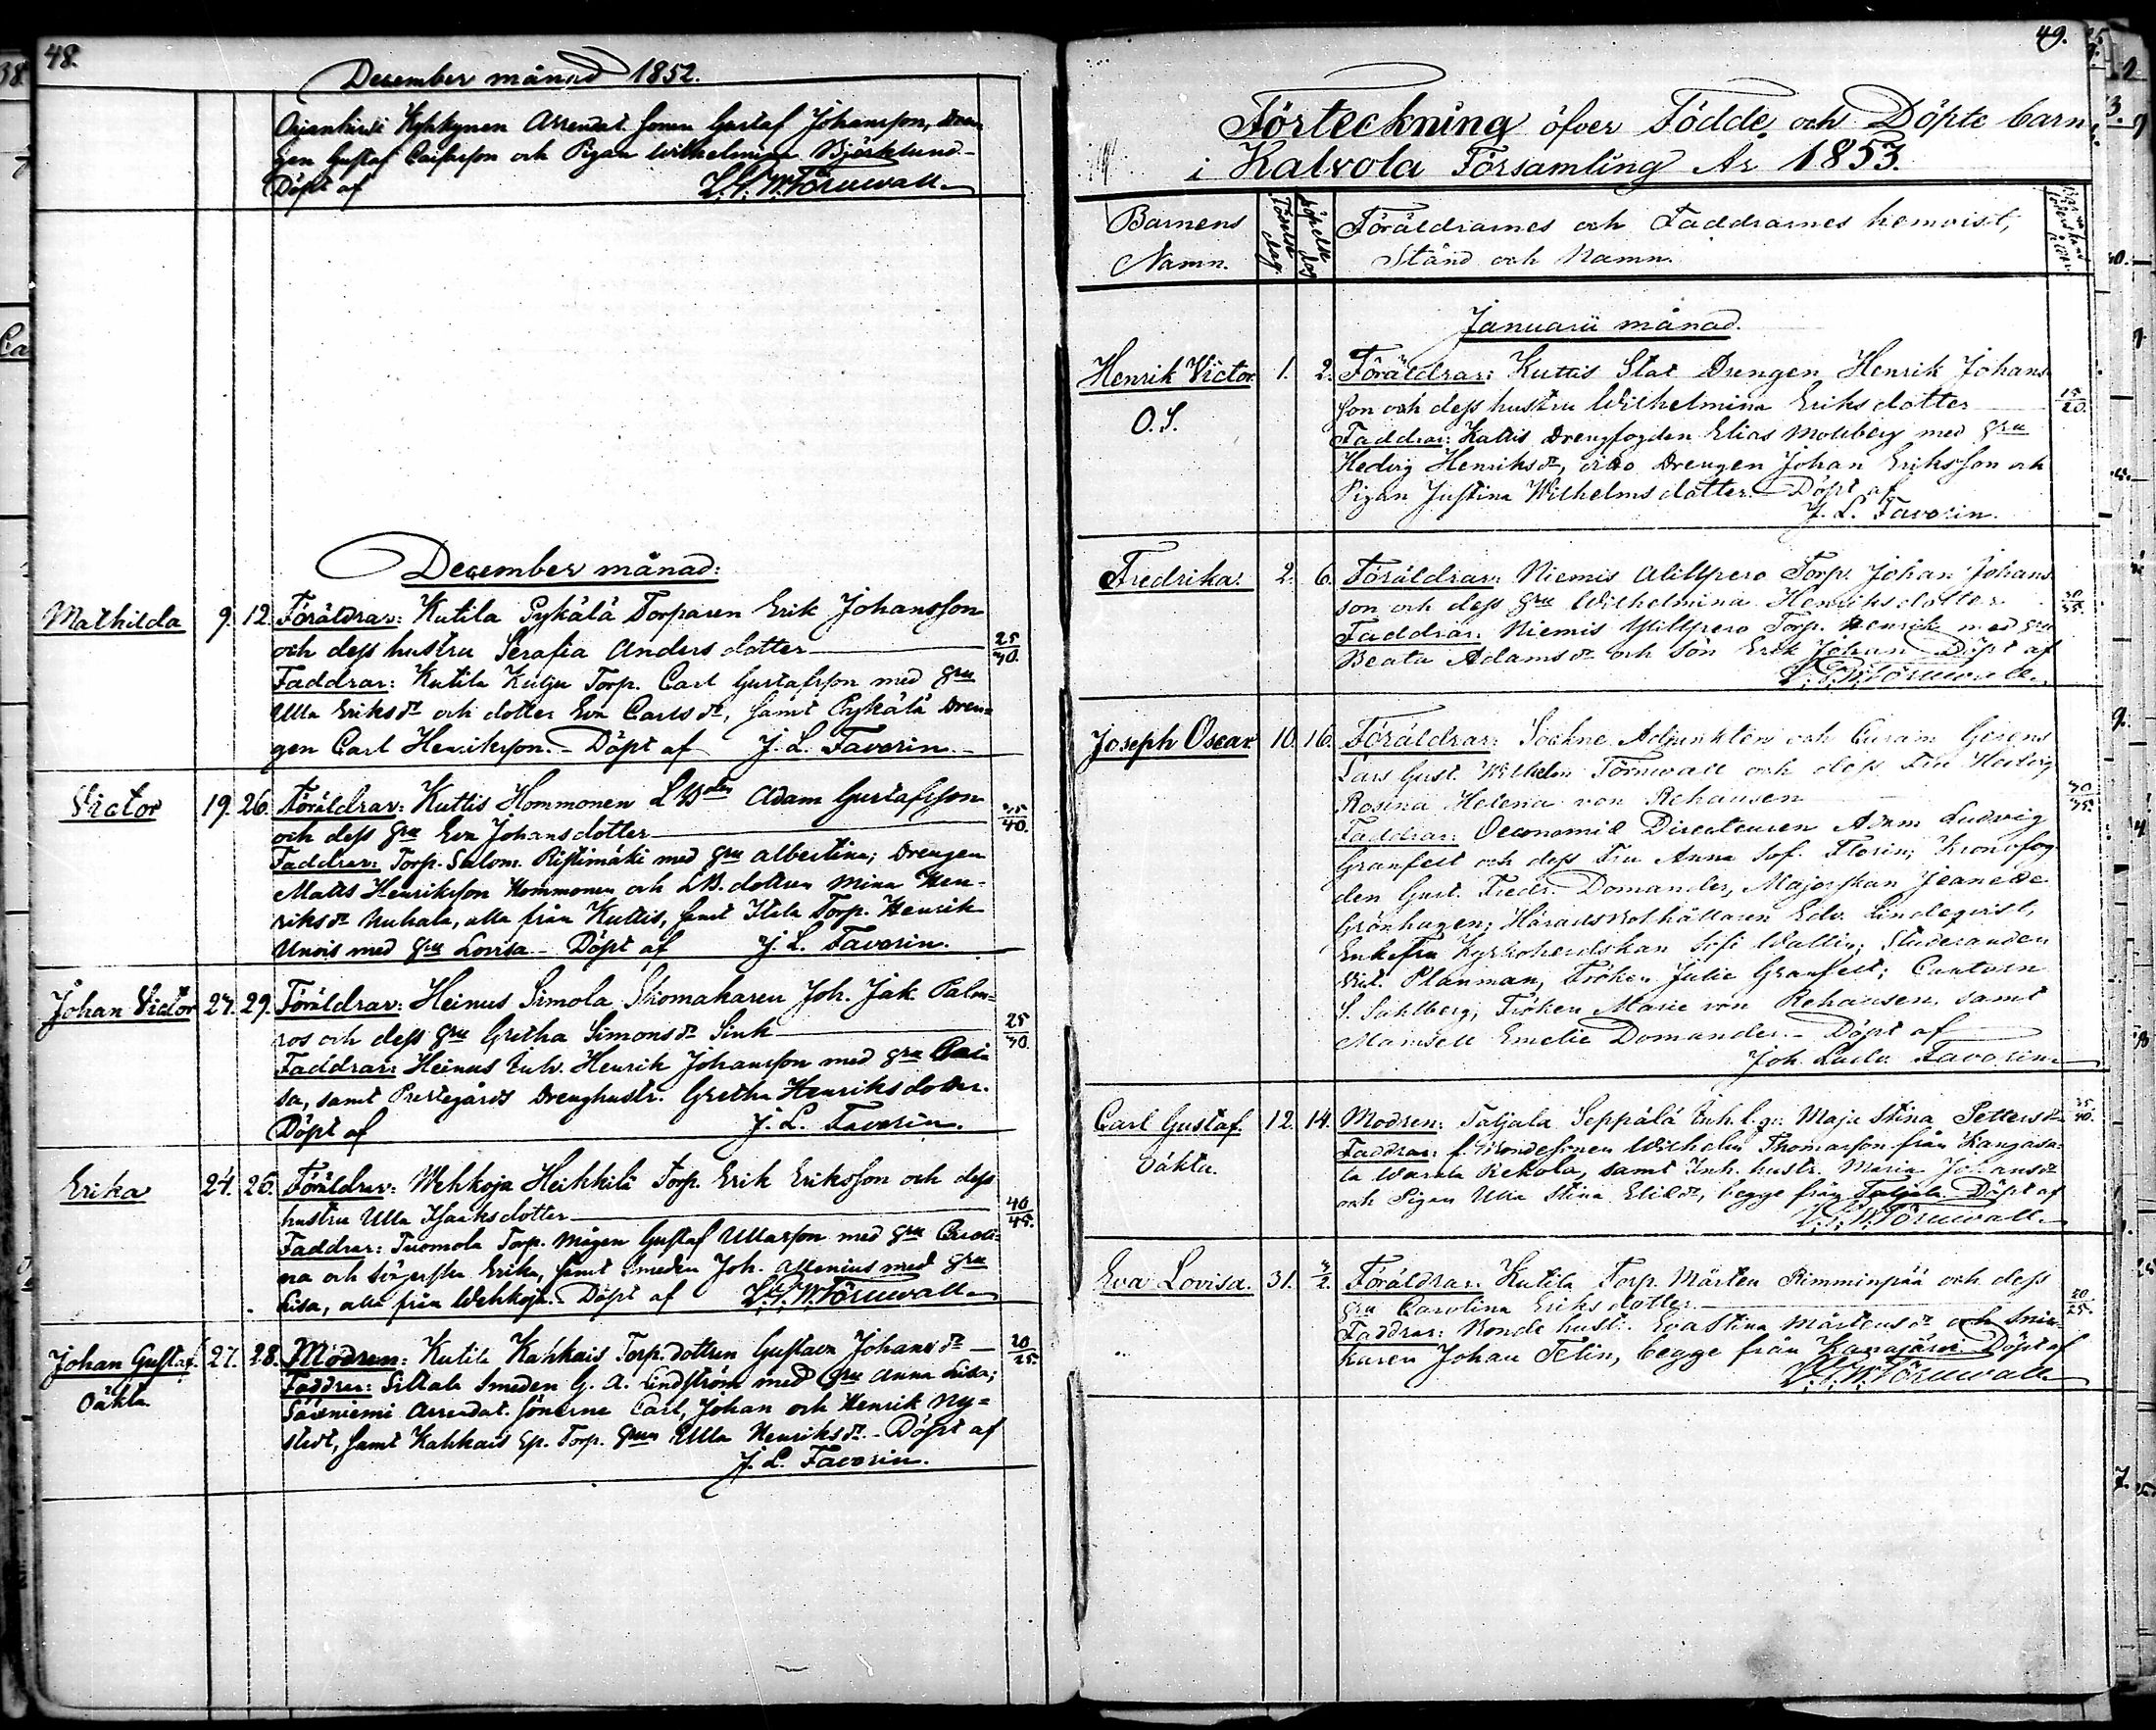 48.
December månad 1852.
Arrendat. sonen Gustaf Johansson, Dren
gen Gustaf och Pigan Wilhelmina Björklund –
Döpt af L. G. W. Törnwall
December månad:
Mathilda 9. 12. Föräldrar: Kutila Pykälä Torparen Erik Johansson
och dess hustru Serafia Anders dotter 25/30.
Faddrar: Kutila Kulju Torp. Carl Gustafsson med Hru
Ulla Eriks dr och dotter Eva Carls dr, samt Pykälä Dren=
gen Carl Henriksson. – Döpt af J. L. Favorin. –
Victor 19. 26. Föräldrar: Kuttis Hommonen Adam Gustafsson
och dess Hru Eva Johansdotter 35/40.
Faddrar: Torp. Salom. Ristimäki med Hru Albertina; Drengen
Matts Henriksson Hommonen och LB. dottren Mina Hen-
riks dr Nuhala, alla från Kuttis, samt Ittala Torp. Henrik
Unois med Hru Lovisa – Döpt af J. L. Favorin.
Johan Victor 27. 29. Föräldrar: Heinus Simola Skomakaren Joh. Jak. Palm-
ros och dess Hru Gretha Simons dr Sink 25/30.
Faddrar: Heinus Inh. Henrik Johansson med Hru Cai
sa, samt Prestegårds Drenghustr. Gretha Henriksdotter.
Döpt af J. L. Favorin.
Erika 24. 26. Föräldrar: Wehkoja Heikkilä Torp. Erik Eriksson och dess
hustru Ulla Isaaksdotter 40/45.
Faddrar: Tuomola Torp. Mågen Gustaf Ullasson med Hru Caroli-
na och Erika, samt Smeden Joh. Allenius med Hru
Lisa, alla från Wehkoja. – Döpt af L. G. W. Törnwall
Johan Gustaf. 27. 28. Modren: Kutila Kahkais Torp. dottren Gustava Johans dr – 20/25.
Oäkta Faddrar: Sittala Smeden G. A. Lindström med Hru Anna Lisa;
Sääxniemi Arrendat. sönerne Carl, Johan och Henrik Ny=
stedt, samt Kahkais Torp. Hrun Ulla Henriks dr. – Döpt af
J. L. Favorin.
49.
Förteckning öfver Födde och Döpte barn
i Kalvola Församling År 1853.
Barnens Namn. Födelse dag. Döpelse dag Föräldrarnes och Faddrarnes hemvist,
Stånd och Namn.
Januarii månad.
Henrik Victor 1. 2. Föräldrar: Kuttis Stat Drengen Henrik Johans
O. S. son och dess hustru Wilhelmina Eriks dotter 15/20.
Faddrar: Kuttis Drengfogden Elias Mollberg med Hru
Hedvig Henriks dr, ditto Drengen Johan Eriksson och
Pigan Justina Wilhelms dotter. – Döpt af
J. L. Favorin.
Fredrika. 2. 6. Föräldrar: Niemis Alillpero Torp. Johan Johans
son och dess Hru Wilhelmina Henriksdotter 30/35.
Faddrar: Niemis Ylillpero Torp. Henrik med Hru
Beata Adams dr och son Erik Johan Döpt af
L. G. W. Törnwall.
Joseph Oscar. 10. 16. Föräldrar: Sockne Adjunkten och Curam Gerens
Lars Gust. Wilhelm Törnwall och dess Fru Hedvig
Rosina Helena von Rehausen 30/35.
Faddrar: Oeconomie Directeuren Adam Ludvig
Granfelt och dess Fru Anna Sof. Florin; Kronofog
den Gust. Fredr. Domander, Majorskan Jeanette
Grönhagen; Häradsbokhållaren Edv. Lindeqvist,
Enkefru Kyrkoherdskan Sofi Wallin; Studeranden
Vict. Planman, Fröken Julie Granfelt; Cantorn
S. Sahlberg, Fröken Marie von Rehausen, samt
Mamsell Emelie Domander. – Döpt af
Joh. Ludv. Favorin
Carl Gustaf. 12. 14. Modren: Taljala Seppälä Inh. l. q. Maja Stina Petters dr 35/40.
Oäkta. Faddrar: f. Bondesonen Wilhelm Thomasson från Kangasa-
la Rekola, samt Inh. hustr. Maria Johans dr
och Pigan Ulla Stina dr, begge från Taljala. Döpt af
L. G. W. Törnwall.
Eva Lovisa. 31. 2/2. Föräldrar. Kutila Torp. Mårten Rimminpää och dess
Hru Carolina Eriks dotter 20/25.
Faddrar: Bonde hustr. Eva Stina Mårtens dr och Snic-
karen Johan Telin, begge från Kanajärvi Döpt af
L. G. W. Törnwall